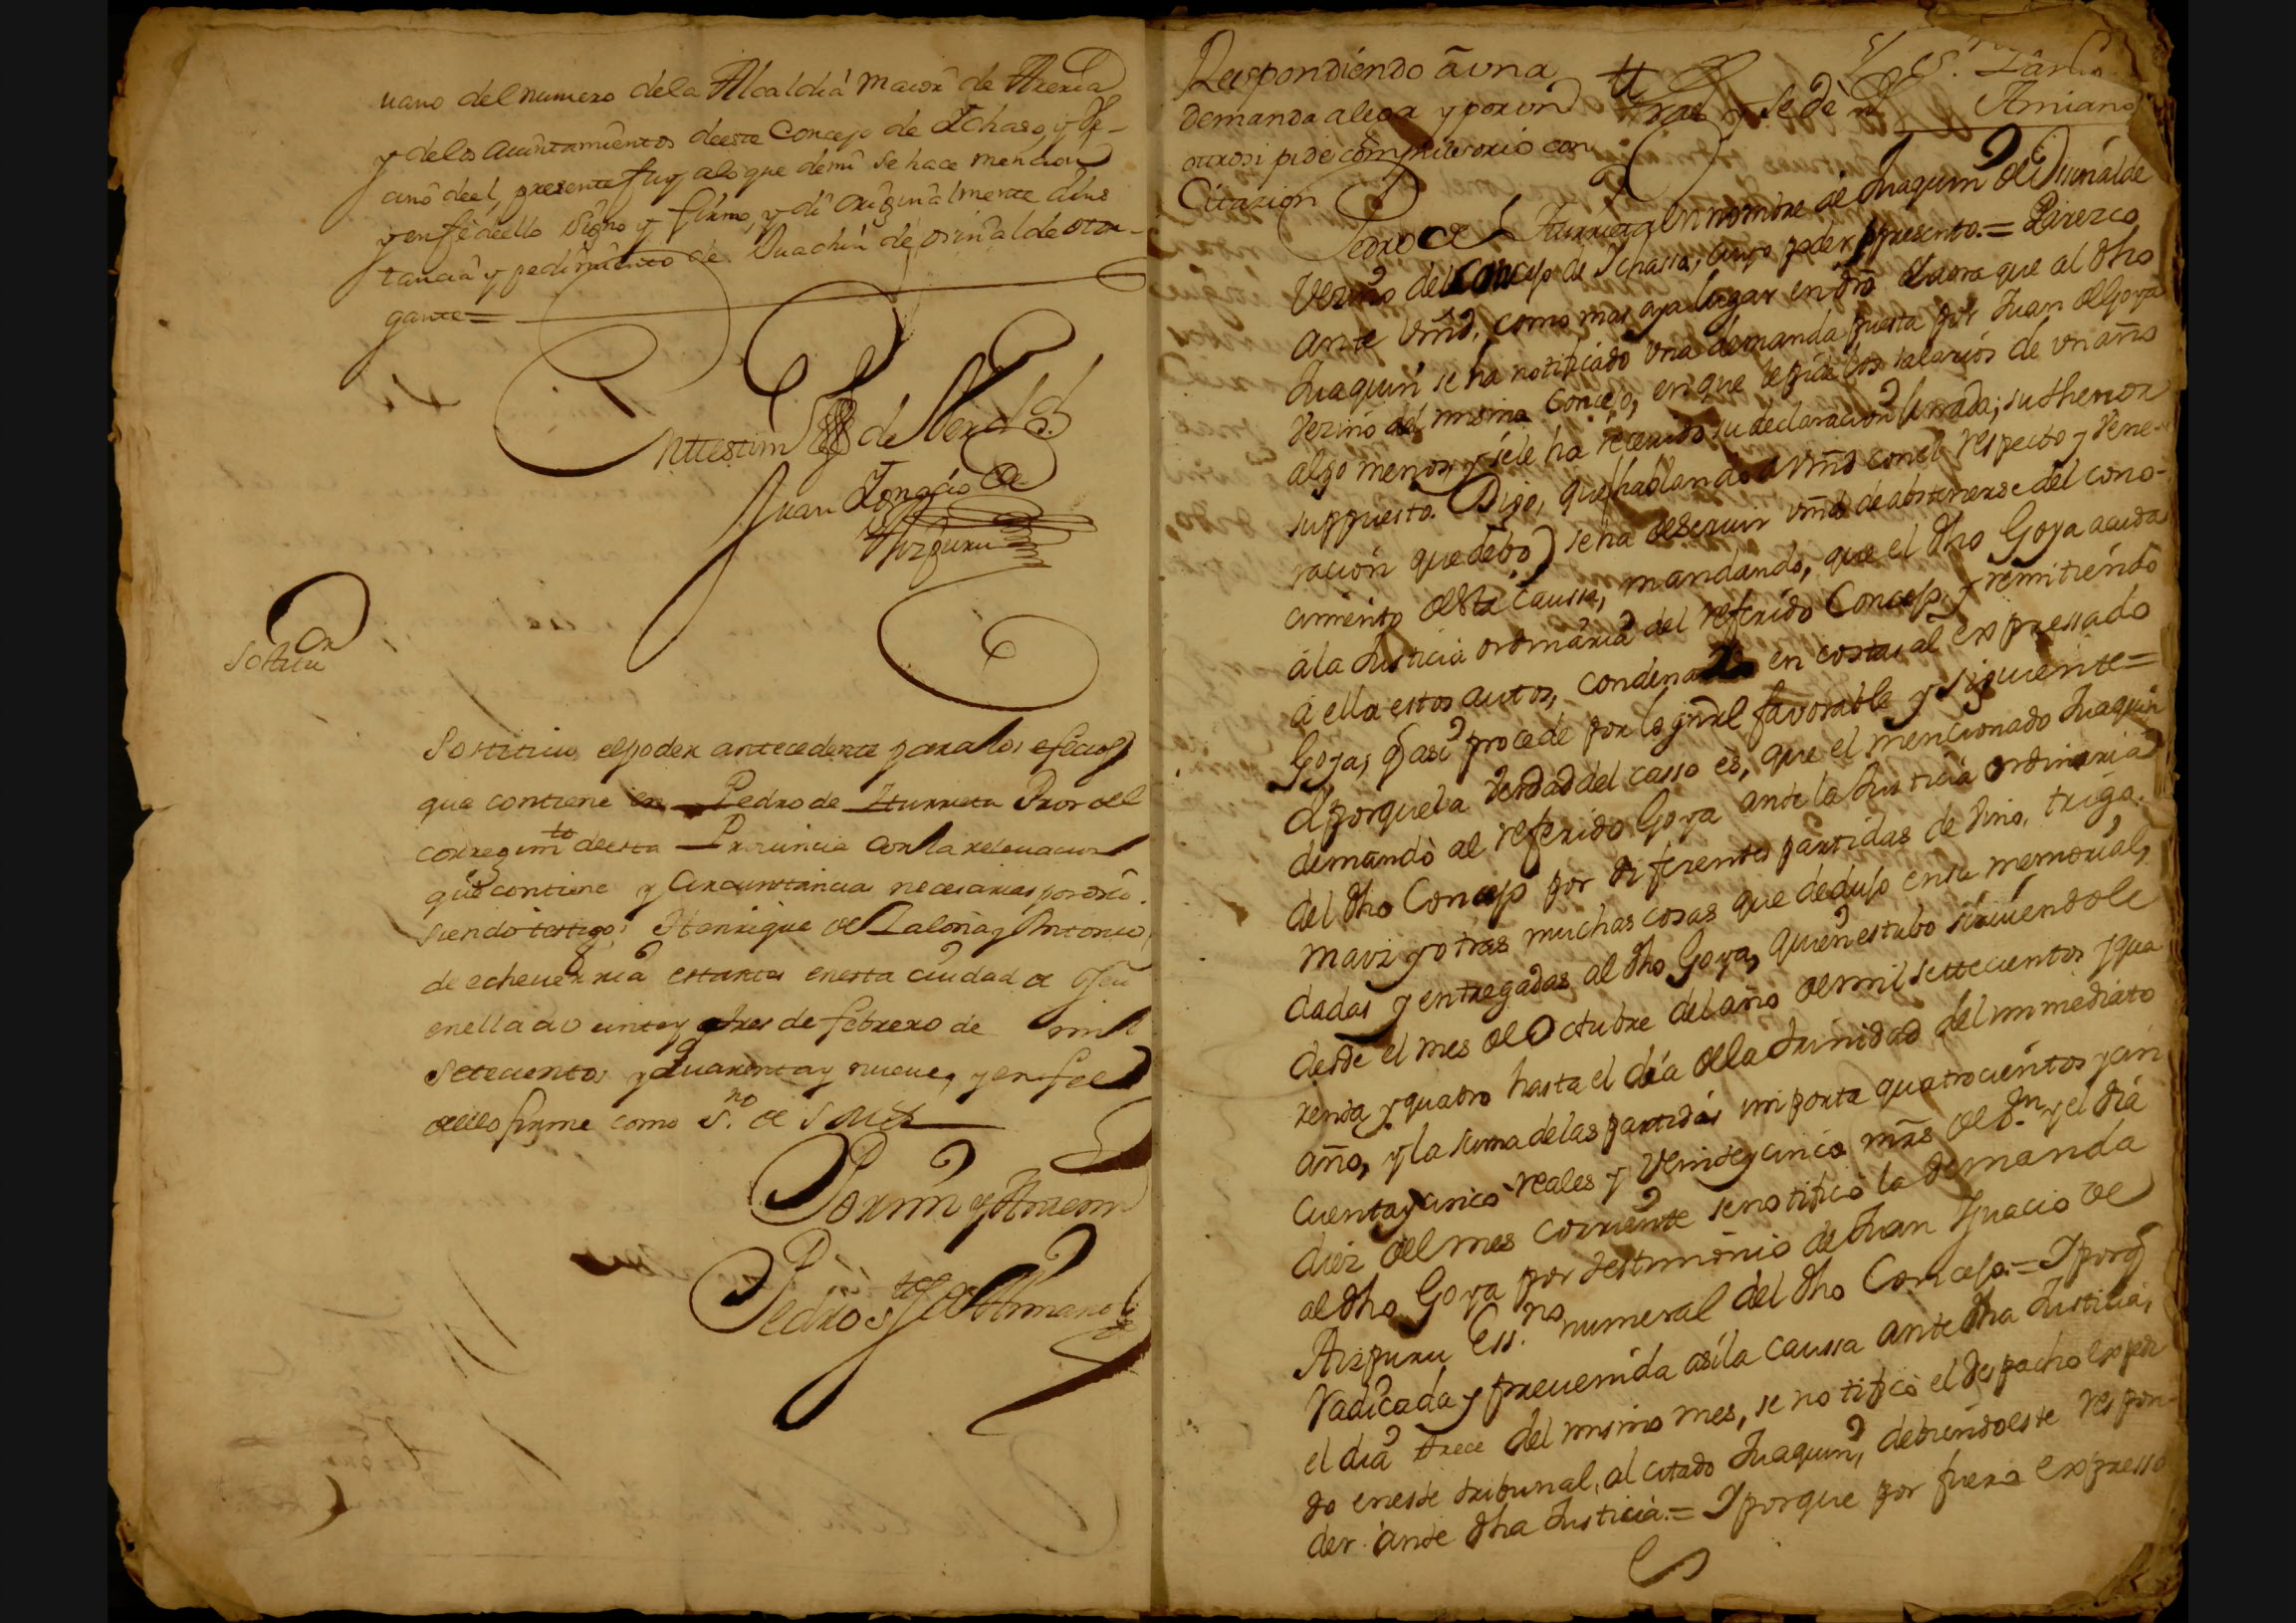 uano del numero dela Alcaldia maior de Areria
y delos aiuntamientos deeste Concejo de Ichaso, y Ve-
cino deel, presente fuy alo que demi se hace mencion
y en fe deello signo y firmo, y di originalmente a ins
tancia y pedimiento de Juachin de orinalde otor-
gante=
En testim de Verdad.
Juan Ignacio de
Aizpuru
Sostitu
Sostituio el poder antecedente para los efectos
que contiene en Pedro de Iturrieta Pror del
corregimto deesta Provincia con la releuacion
que contiene y Circunstancias necesarias por dro.
siendo testigos Henrique de Laloria y Antonio
de echeuerria estantes enesta Ciudad de
enella a veinte y tres de febrero de mil
Setecientos y quarenta y nueue, y en fee
deello firme como S.no de S Md
Por mi y Ante mi
Pedro
Respondiendo a una
demanda alega y por un
otrosi pide compulsorio con
Citazion
Trasl y Se dè
Pedro de Iturrieta en nombre de Juaquin de Orinalde
Vezino del Concejo de Ichasso, cuyo poder presento.= Parezco
ante Vmd. como mas aya lugar en dro que al dho
Juaquin se ha notificado una demanda puesta por Juan de Goya
Vezino del mismo Concejo, en que le pide los salarios de un año
algo menos, y se le ha recevido su declaracion Jurada; su thenor
suppuesto. Digo, que hablando a Vmd con el respecto y Vene-
racion que debo) se ha de seruir Vmd de abstenerse del cono-
cimiento desta causa, mandando, que el dho Goya acuda
á la Justicia ordinaria del referido Concejo, y remitiendo
á ella estos autos, condenando en costas al expressado
Goya; q asi procede por lo gnral favorable y siguiente=
Y porque la verdad del casso es, que el mencionado Juaquin
demandò al referido Goya ante la Justicia ordinaria
del dho Concejo por diferentes partidas de Vino, trigo.
maiz y otras muchas cosas que dedujo en su memorial,
dadas y entregadas al dho Goya, quien estubo siruiendole
desde el mes de Octubre del año de mil settecientos y qua
renta y quatro hasta el dia de la Trinidad del immediato
año, y la suma de las partidas importa quatrocientos y cin
cuenta y cinco reales y Veinte y cinco mrs de Vn y el dia
diez del mes corriente se notificó la demanda
al dho Goya por testimonio de Juan Ignacio de
Aizpuru Ess.no numeral del dho Concejo.= Y porq
radicada y preuenida asi la caussa ante dha Justicia,
el dia trece del mismo mes, se notificó el despacho expedi
do en este tribunal, al citado Juaquin, debiendo este respon-
der ante dha Justicia.= Y porque por fuero expresso